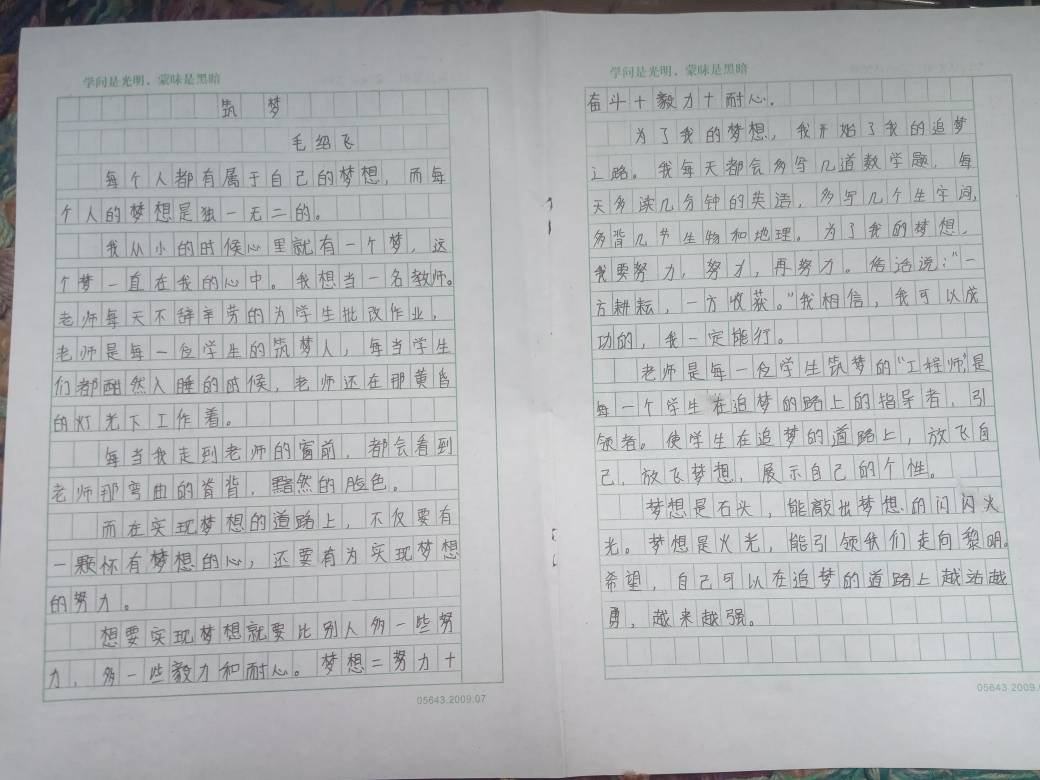 学问是光明，蒙昧是黑暗
筑 梦
毛绍飞
每个人都有属于自己的梦想，而每
个人的梦想是独一无二的。
我从小的时候心里就有一个梦，这
个梦一直在我的心中。我想当一名教师。
老师每天不辞辛劳的为学生批改作业，
老师是每一位学生的筑梦人，每当学生
们都酣然入睡的时候，老师还在那黄昏
的灯光下工作着。
每当我走到老师的窗前，都会看到
老师那弯曲的脊背，黯然的脸色。
而在实现梦想的道路上，不仅要有
一颗怀有梦想的心，还要有为实现梦想
的努力。
想要实现梦想就要比别人多一些努
力，多一些毅力和耐心。梦想=努力+
05643.2009.07
学问是光明，蒙昧是黑暗
奋斗+毅力+耐心。
为了我的梦想，我开始了我的追梦
之路。我每天都会多写几道数学题，每
天多读几分钟的英语，多写几个生字词，
多背几节生物和地理。为了我的梦想，
我要努力，努力，再努力。俗话说："一
方耕耘，一方收获。"我相信，我可以成
功的，我一定能行。
老师是每一位学生筑梦的"工程师"是
每一个学生在追梦的路上的指导者，引
领者。使学生在追梦的道路上，放飞自
己，放飞梦想，展示自己的个性。
梦想是石头，能敲出梦想的闪闪火
光。梦想是火光，能引领我们走向黎明。
希望，自己可以在追梦的道路上越站越
勇，越来越强。
05643 2009.